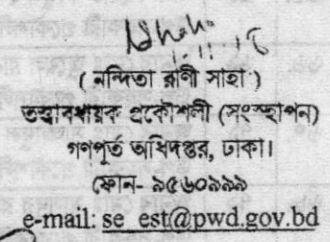 ( নন্দিতা রাণী সাহা )
তত্ত্বাবধায়ক প্রকৌশলী (সংস্থাপন)
গণপূর্ত অধিদপ্তর, ঢাকা।
ফোন- ৯৫৬০৯৯৯
e-mail: se_est@pwd.gov.bd